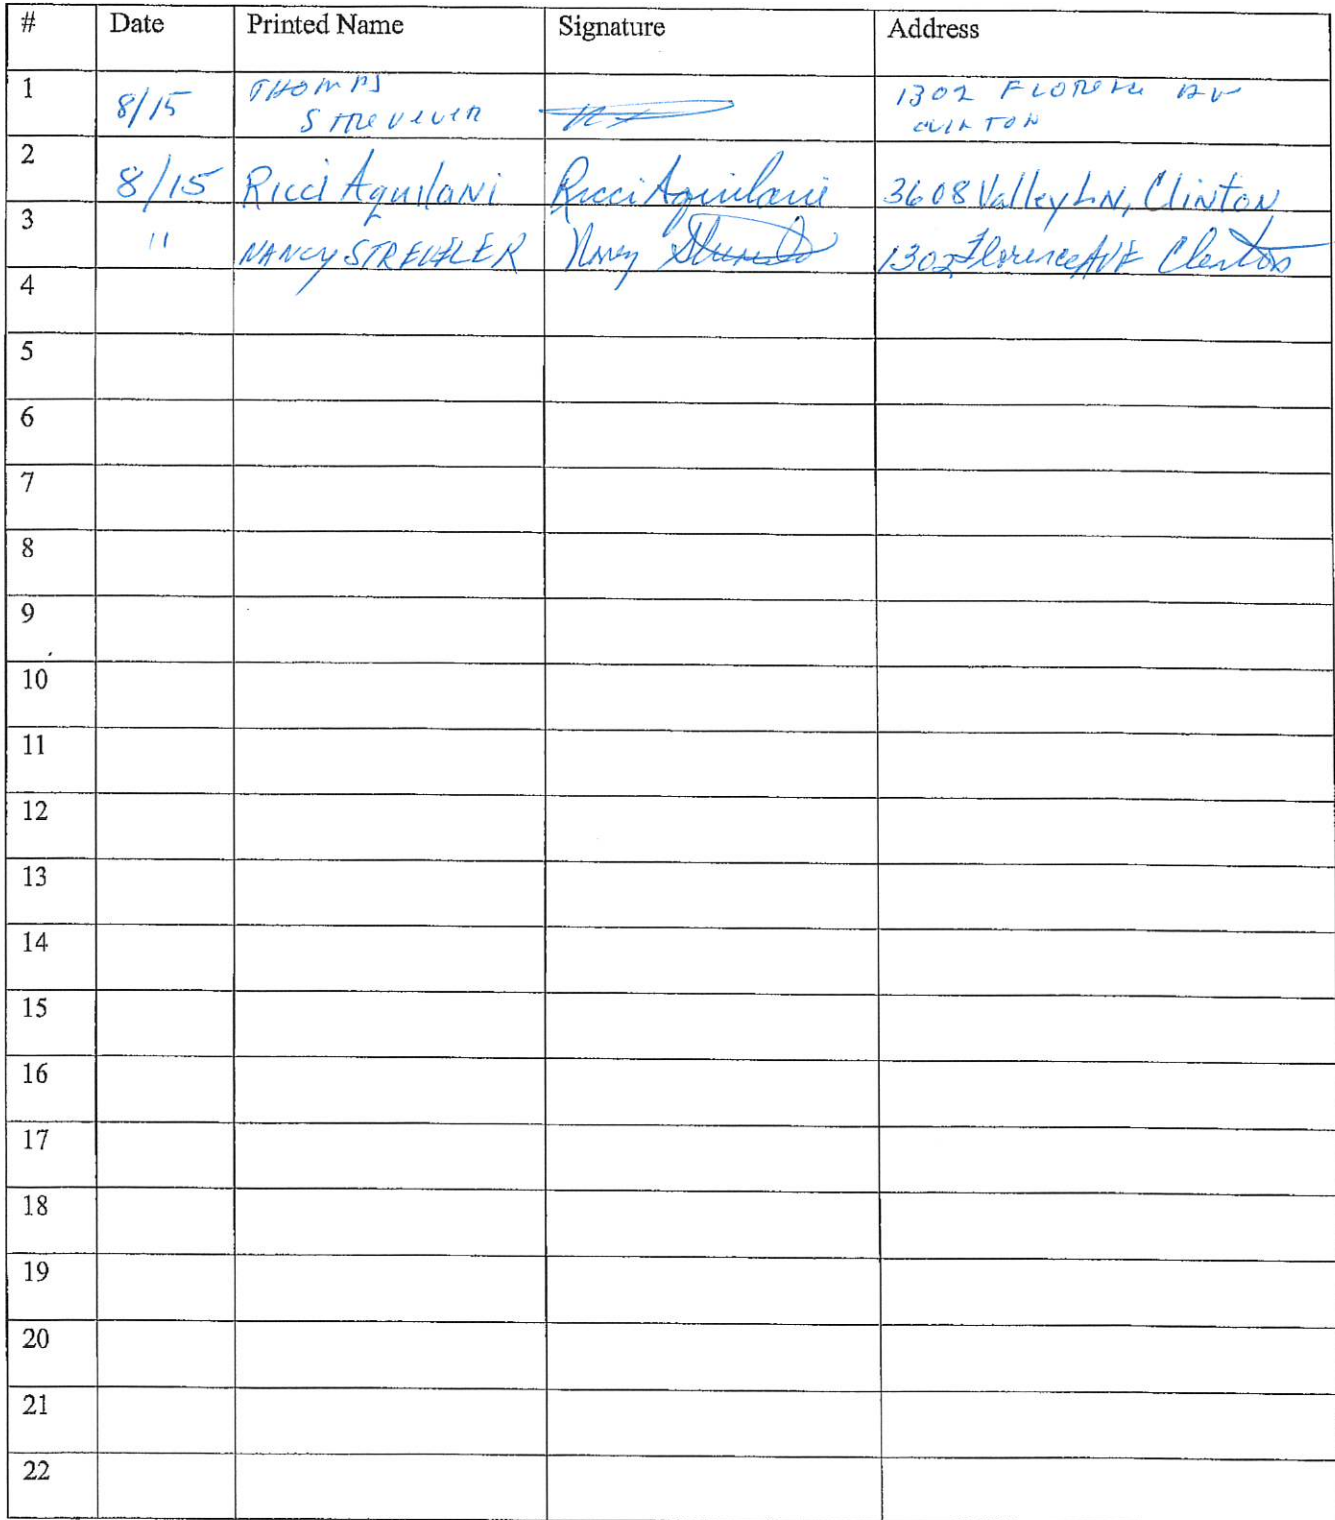 # Date Printed Name Signature Address
1 8/15 THOMAS 1302 AV
CLINTON
2 8/15 Ricci Aquilani Ricci Aquilani 3608 Valley LN, Clinton
3 " NANCY Nancy 1302 Florence AVE Clinton
4
5
6
7
8
9
10
11
12
13
14
15
16
17
18
19
20
21
22